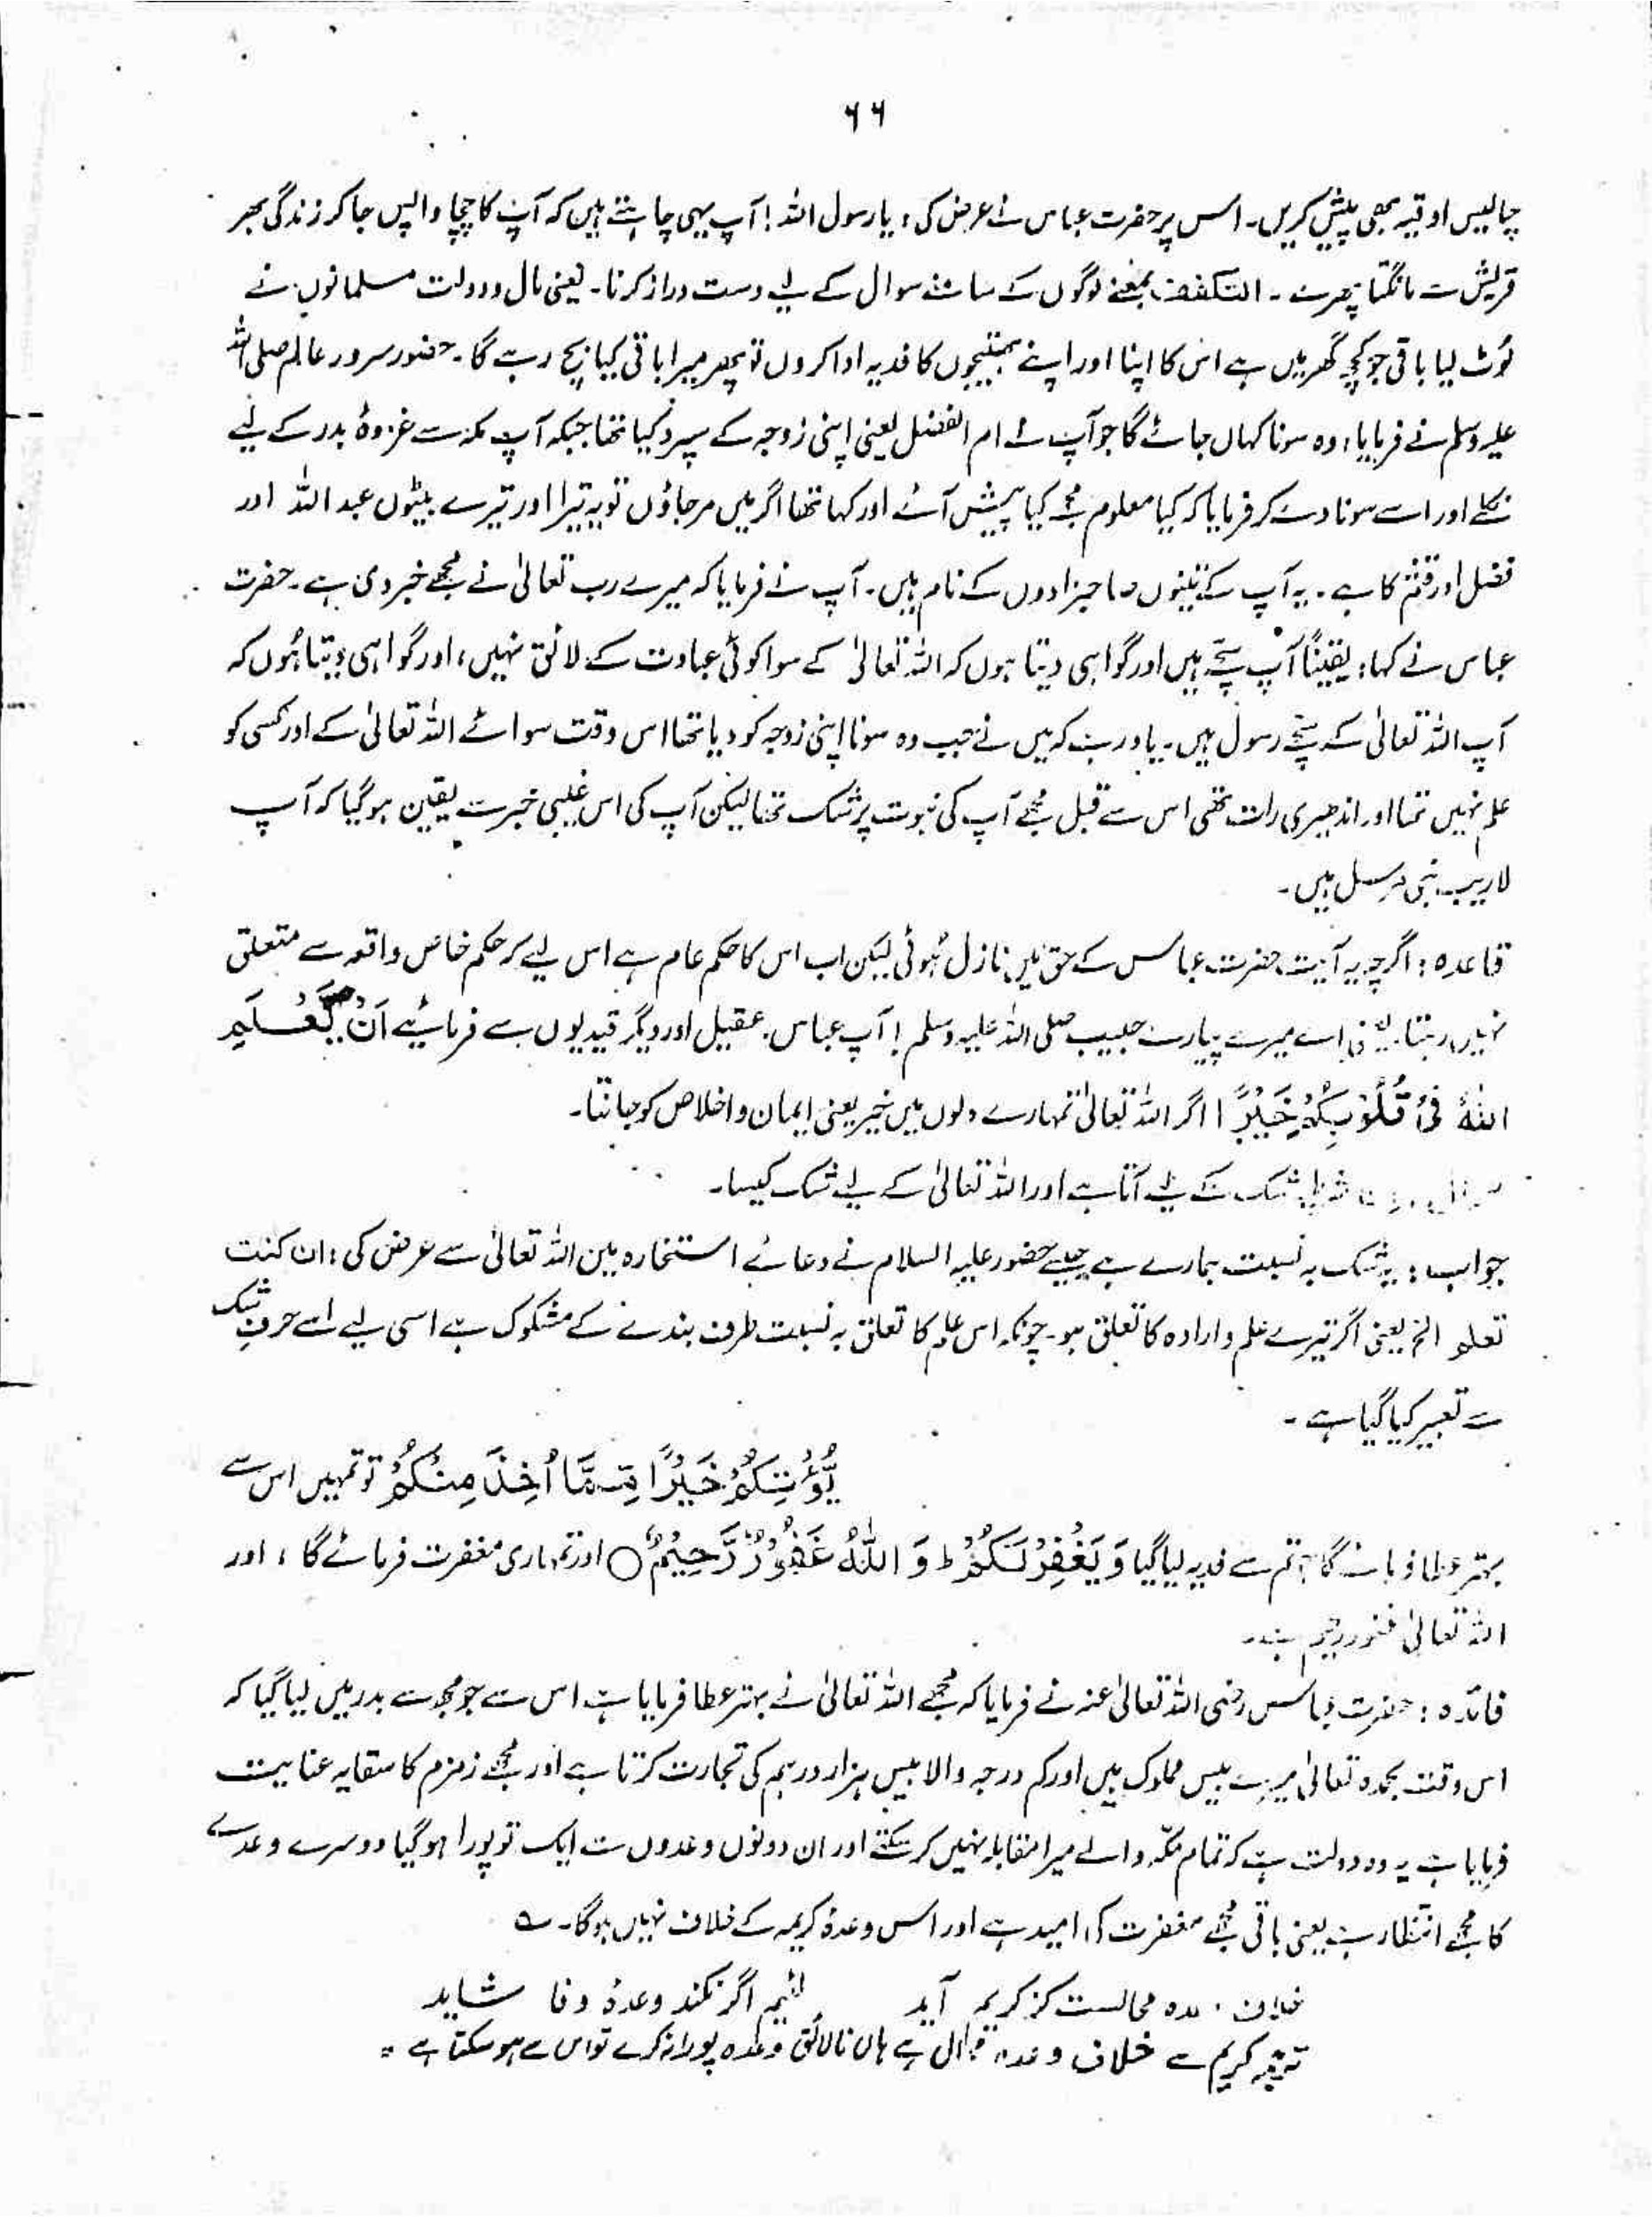 ۶۶
چالیس اوقیہ بھی پیش کریں۔ اس پر حضرت عباس نے عرض کی: یا رسول اللہ! آپ یہی چاہتے ہیں کہ آپ کا چچا واپس جا کر زندگی بھر
قریش سے مانگتا پھرے۔ التکفف بمعنے لوگوں کے سامنے سوال کے لیے دست دراز کرنا۔ یعنی مال و دولت مسلمانوں نے
لوٹ لیا باقی جو کچھ گھر میں ہے اس کا اپنا اور اپنے بھتیجوں کا فدیہ ادا کروں تو پھر میرا باقی کیا بچ رہے گا۔ حضور سرور عالم صلی اللہ
علیہ وسلم نے فرمایا: وہ سونا کہاں جائے گا جو آپ نے ام الفضل یعنی اپنی زوجہ کے سپرد کیا تھا جبکہ آپ مکہ سے غزوۂ بدر کے لیے
نکلے اور اسے سونا دے کر فرمایا کہ کیا معلوم مجھے کیا پیش آئے اور کہا تھا اگر میں مر جاؤں تو یہ تیرا اور تیرے بیٹوں عبد اللہ اور
فضل اور قثم کا ہے۔ یہ آپ کے تینوں صاحبزادوں کے نام ہیں۔ آپ نے فرمایا کہ میرے رب تعالیٰ نے مجھے خبر دی ہے۔ حضرت
عباس نے کہا: یقیناً آپ سچے ہیں اور گواہی دیتا ہوں کہ اللہ تعالیٰ کے سوا کوئی عبادت کے لائق نہیں، اور گواہی دیتا ہوں کہ
آپ اللہ تعالیٰ کے سچے رسول ہیں۔ یاد رہے کہ میں نے جب وہ سونا اپنی زوجہ کو دیا تھا اس وقت سوائے اللہ تعالیٰ کے اور کسی کو
علم نہیں تھا اور اندھیری رات تھی اس سے قبل مجھے آپ کی نبوت پر شک تھا لیکن آپ کی اس غیبی خبر سے یقین ہو گیا کہ آپ
لاریب نبی مرسل ہیں۔
قاعدہ: اگرچہ یہ آیت حضرت عباس کے حق میں نازل ہوئی لیکن اب اس کا حکم عام ہے اس لیے کہ حکم خاص واقعہ سے متعلق
نہیں رہتا یعنی اے میرے پیارے حبیب صلی اللہ علیہ وسلم! آپ عباس، عقیل اور دیگر قیدیوں سے فرمائیے اَنْ يَّعْلَمِ
اللّٰهُ فِیْ قُلُوْبِكُمْ خَيْرًا اگر اللہ تعالیٰ تمہارے دلوں میں خیر یعنی ایمان و اخلاص کو جانتا۔
شک کے لیے آتا ہے اور اللہ تعالیٰ کے لیے شک کیسا۔
جواب: یہ شک بہ نسبت ہمارے ہے جیسے حضور علیہ السلام نے دعائے استخارہ میں اللہ تعالیٰ سے عرض کی: ان کنت
تعلم الخ یعنی اگر تیرے علم و ارادہ کا تعلق ہو۔ چونکہ اس علم کا تعلق بہ نسبت طرف بندے کے مشکوک ہے اسی لیے اسے حرفِ شک
سے تعبیر کیا گیا ہے۔
يُّؤْتِكُمْ خَيْرًا مِّمَّا اُخِذَ مِنْكُمْ تو تمہیں اس سے
بہتر عطا فرمائے گا جو تم سے فدیہ لیا گیا وَ يَغْفِرْ لَكُمْ ط وَ اللّٰهُ غَفُوْرٌ رَّحِيْمٌ ○ اور تمہاری مغفرت فرمائے گا، اور
اللہ تعالیٰ غفور رحیم ہے۔
فائدہ: حضرت عباس رضی اللہ تعالیٰ عنہ نے فرمایا کہ مجھے اللہ تعالیٰ نے بہتر عطا فرمایا ہے اس سے جو مجھ سے بدر میں لیا گیا کہ
اس وقت بحمدہ تعالیٰ میرے بیس مملوک ہیں اور کم درجہ والا بیس ہزار درہم کی تجارت کرتا ہے اور مجھے زمزم کا سقایہ عنایت
فرمایا ہے یہ وہ دولت ہے کہ تمام مکہ والے میرا مقابلہ نہیں کر سکتے اور ان دونوں وعدوں سے ایک تو پورا ہو گیا دوسرے وعدے
کا مجھے انتظار ہے یعنی باقی مجھے مغفرت کی امید ہے اور اس وعدۂ کریمہ کے خلاف نہیں ہو گا۔ ؎
خلاف وعدہ محالست کز کریم آید لئیم اگر نکند وعدۂ وفا شاید
ترجمہ کریم سے خلاف وعدہ محال ہے ہاں نالائق وعدہ پورا نہ کرے تو اس سے ہو سکتا ہے۔